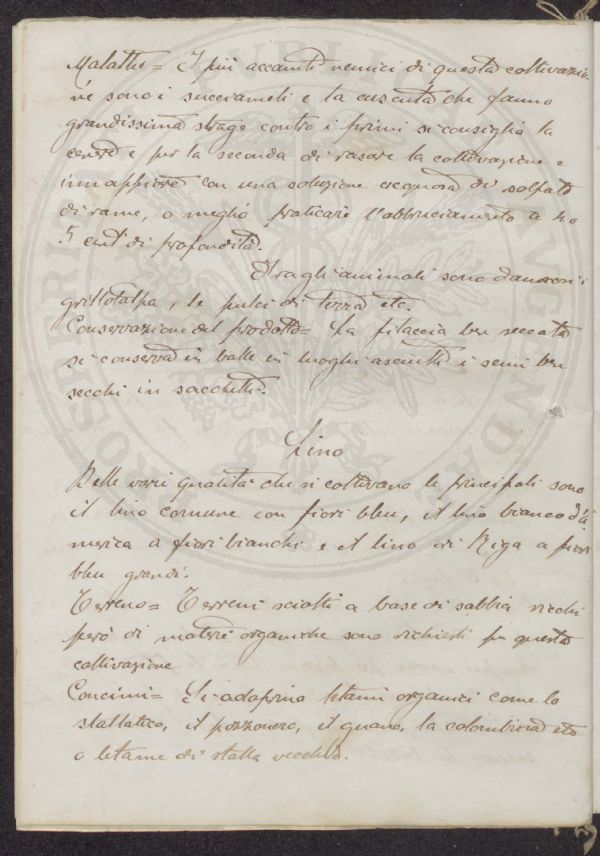 Malattie = I più accaniti nemici di questa coltivazio-
ne sono i succiameli e la cuscuta che fanno
grandissima strage contro i primi si consiglia la
cenere e per la seconda di rasare la coltivazione e
innaffiare con una soluzione acquosa di solfato
di rame, o meglio praticare l'abbruciamento a 4 o
5 cent. di profondità.
Fra gli animali sono dannosi i
grillotalpa, le pulci di terra etc.
Conservazione del prodotto = La filaccia ben seccata
si conserva in balle in luoghi asciutti i semi ben
secchi in sacchetti.
Lino
Delle vari qualità che si coltivano le principali sono
il lino comune con fiori bleu, il lino bianco d'A-
merica a fiori bianchi e il lino di Riga a fiori
bleu grandi.
Terreno = Terreni sciolti a base di sabbia ricchi
però di materie organiche sono richiesti per questa
coltivazione
Concimi = Si adoprino letami organici come lo
stallatico, il pozzonero, il guano, la colombina etc
o letame di stalla vecchio.